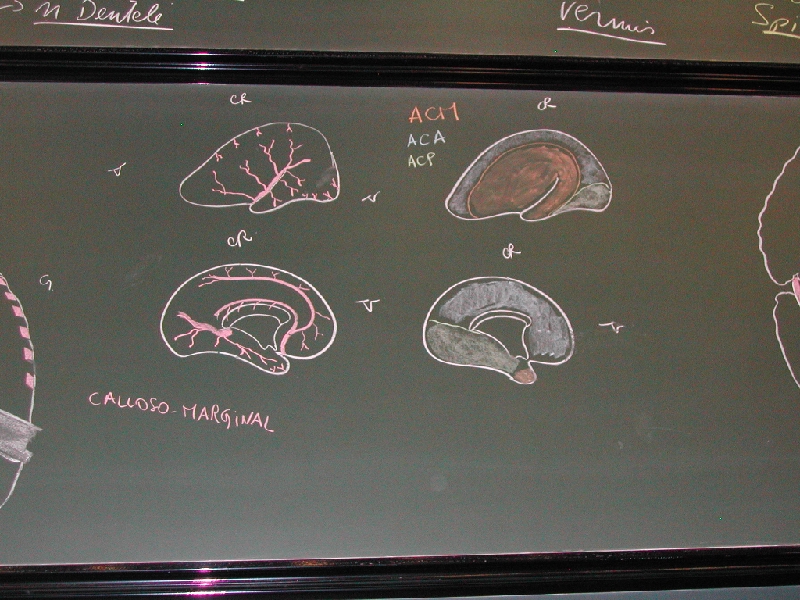 n Dentelé
Vermis
Spi
CR
CR
ACM
ACA
ACP
CR
CR
G
CALLOSO-MARGINAL